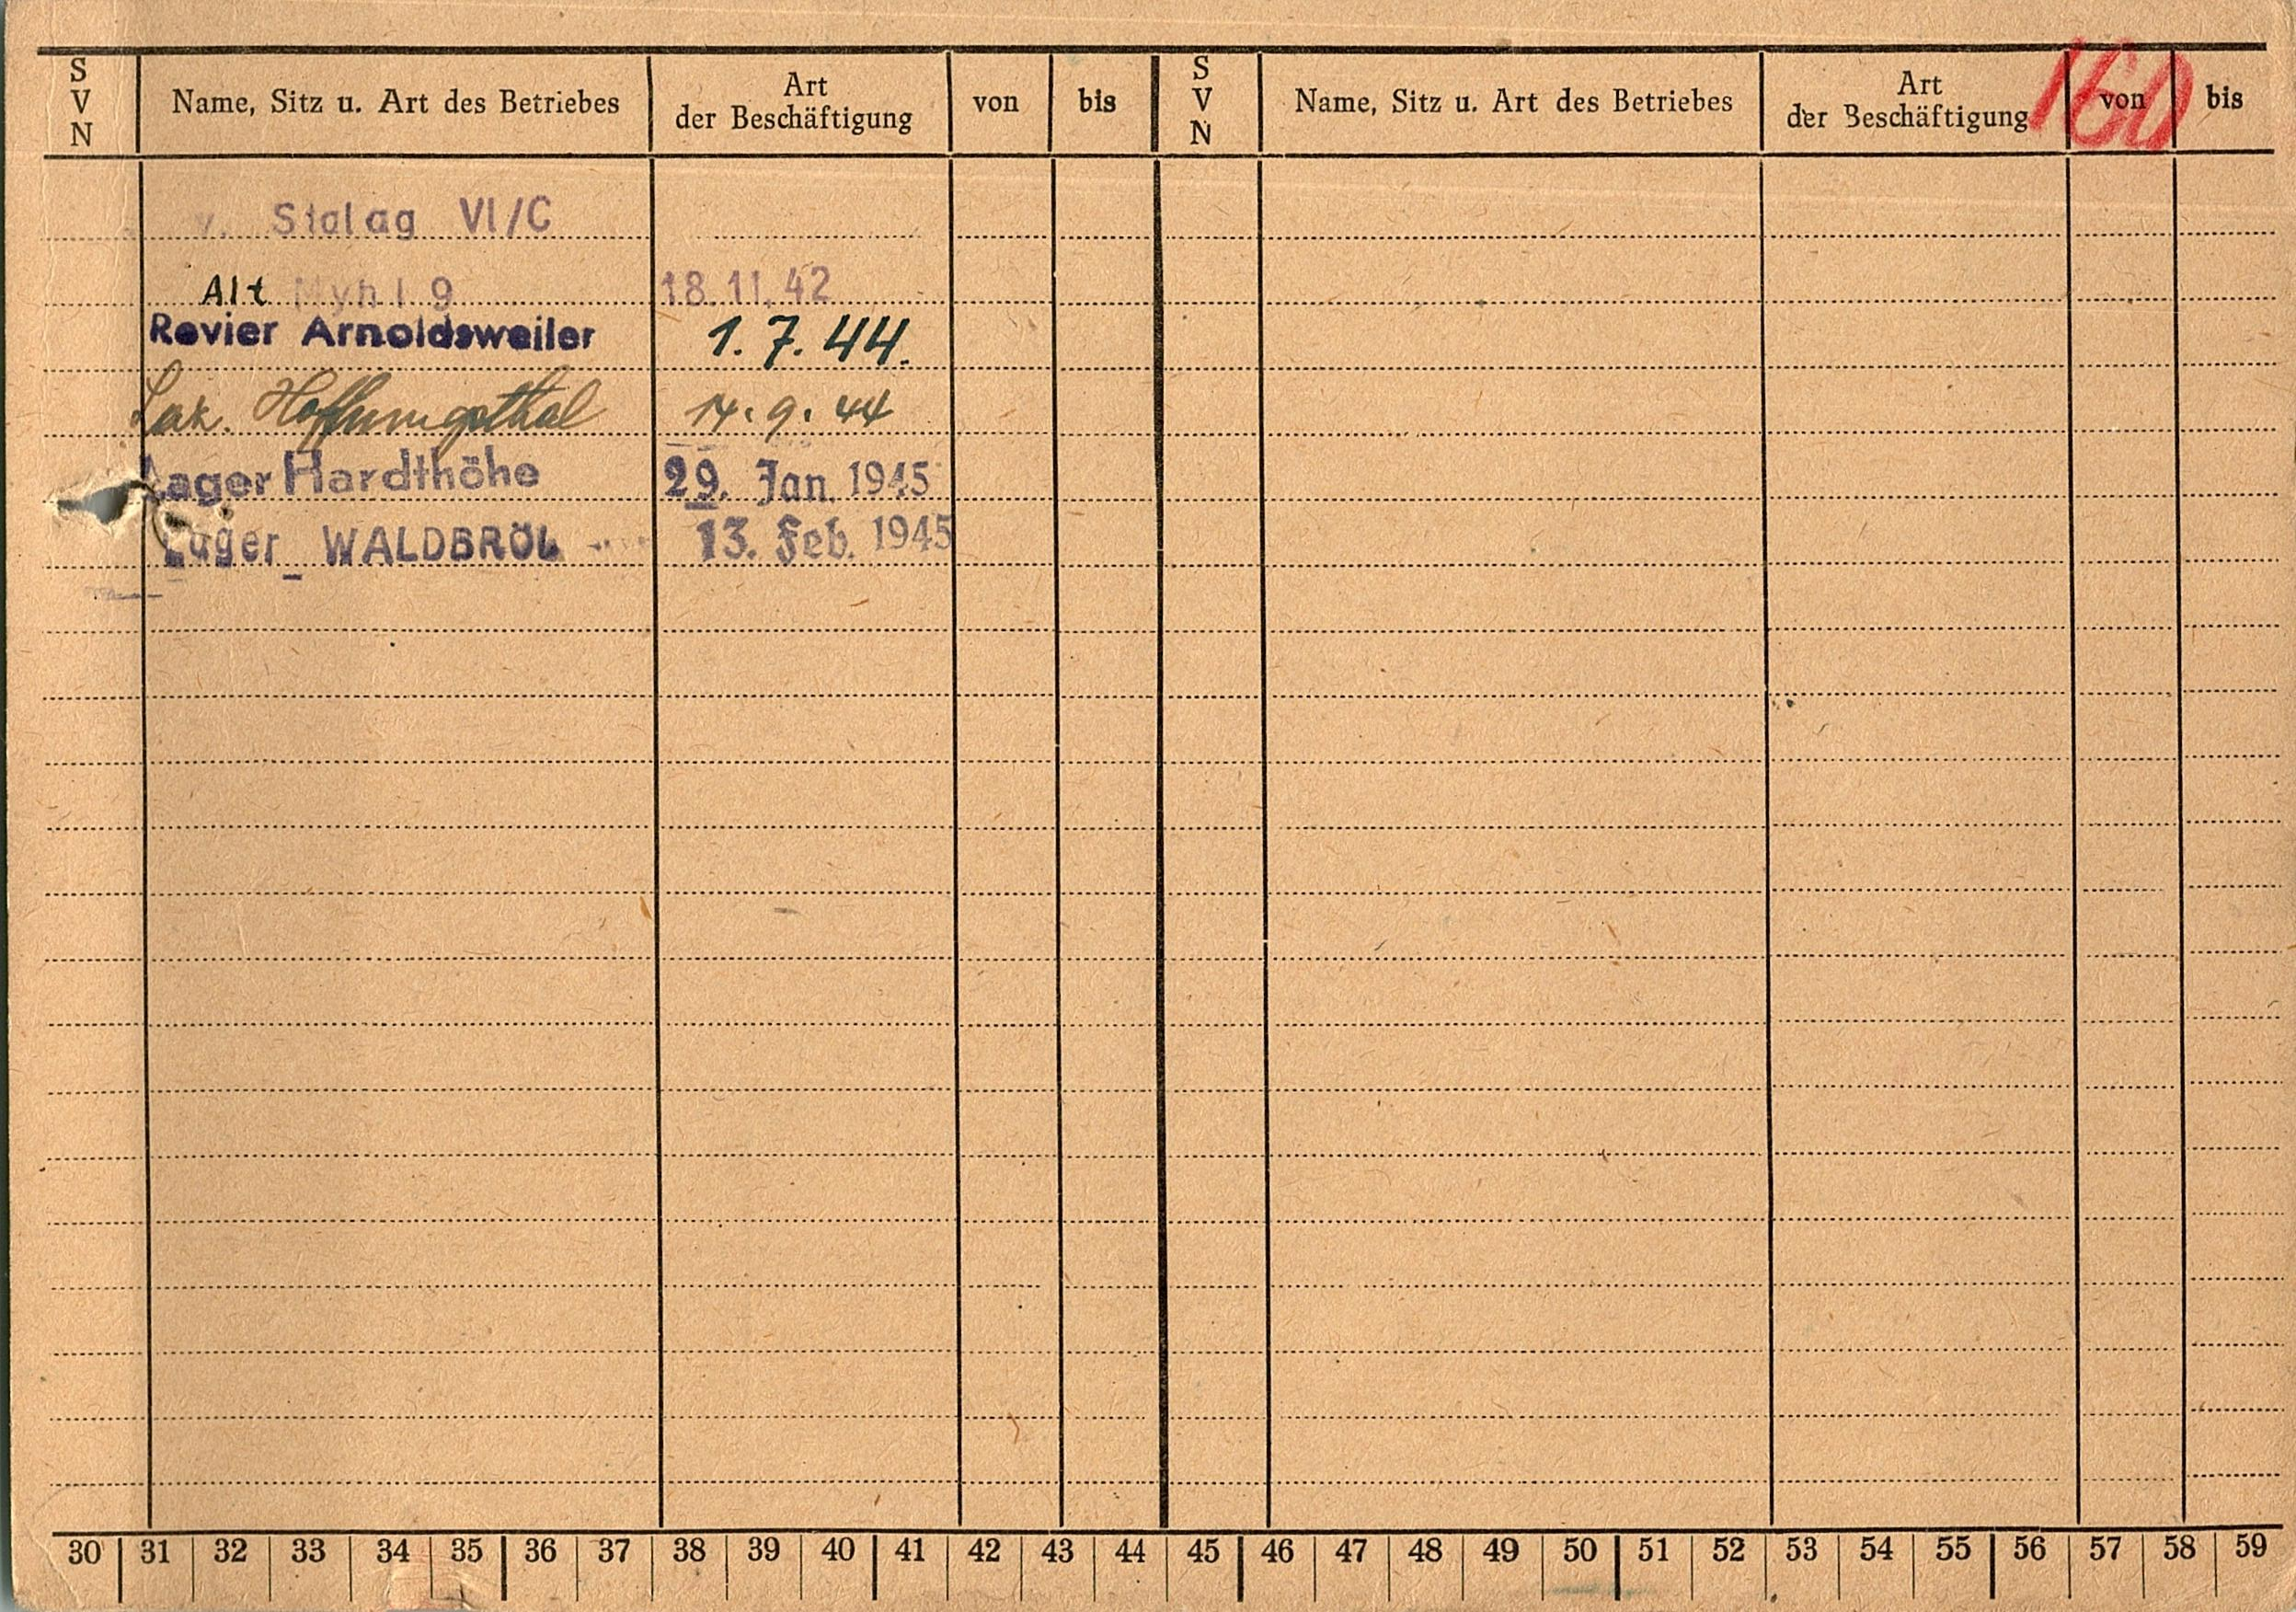 S V N Name, Sitz u. Art des Betriebes Art der Beschäftigung von bis S V N Name, Sitz u. Art des Betriebes Art der Beschäftigung von bis
160
v. Stalag VI/C
Alt Myhl 9 18.11.42
Revier Arnoldsweiler 1.7.44.
Laz. Hoffnungsthal 14.9.44
Lager Hardthöhe 29. Jan. 1945
Lager WALDBRÖL 13. Feb. 1945
30 31 32 33 34 35 36 37 38 39 40 41 42 43 44 45 46 47 48 49 50 51 52 53 54 55 56 57 58 59